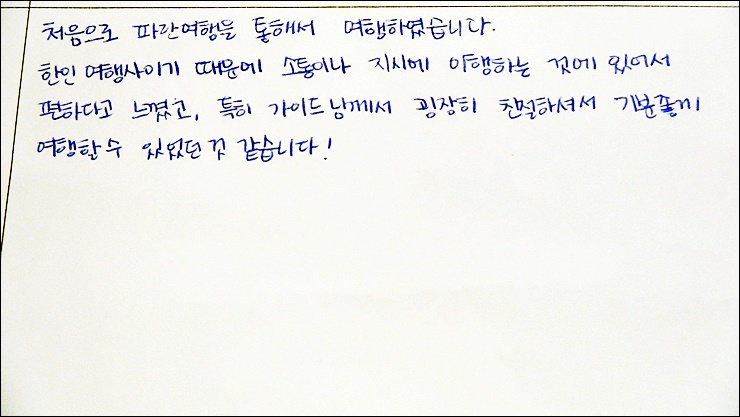 처음으로 파란여행을 통해서 여행하였습니다.
한인 여행사이기 때문에 소통이나 지시에 이행하는 것에 있어서
편하다고 느꼈고, 특히 가이드님께서 굉장히 친절하셔서 기분좋게
여행할 수 있었던 것 같습니다!